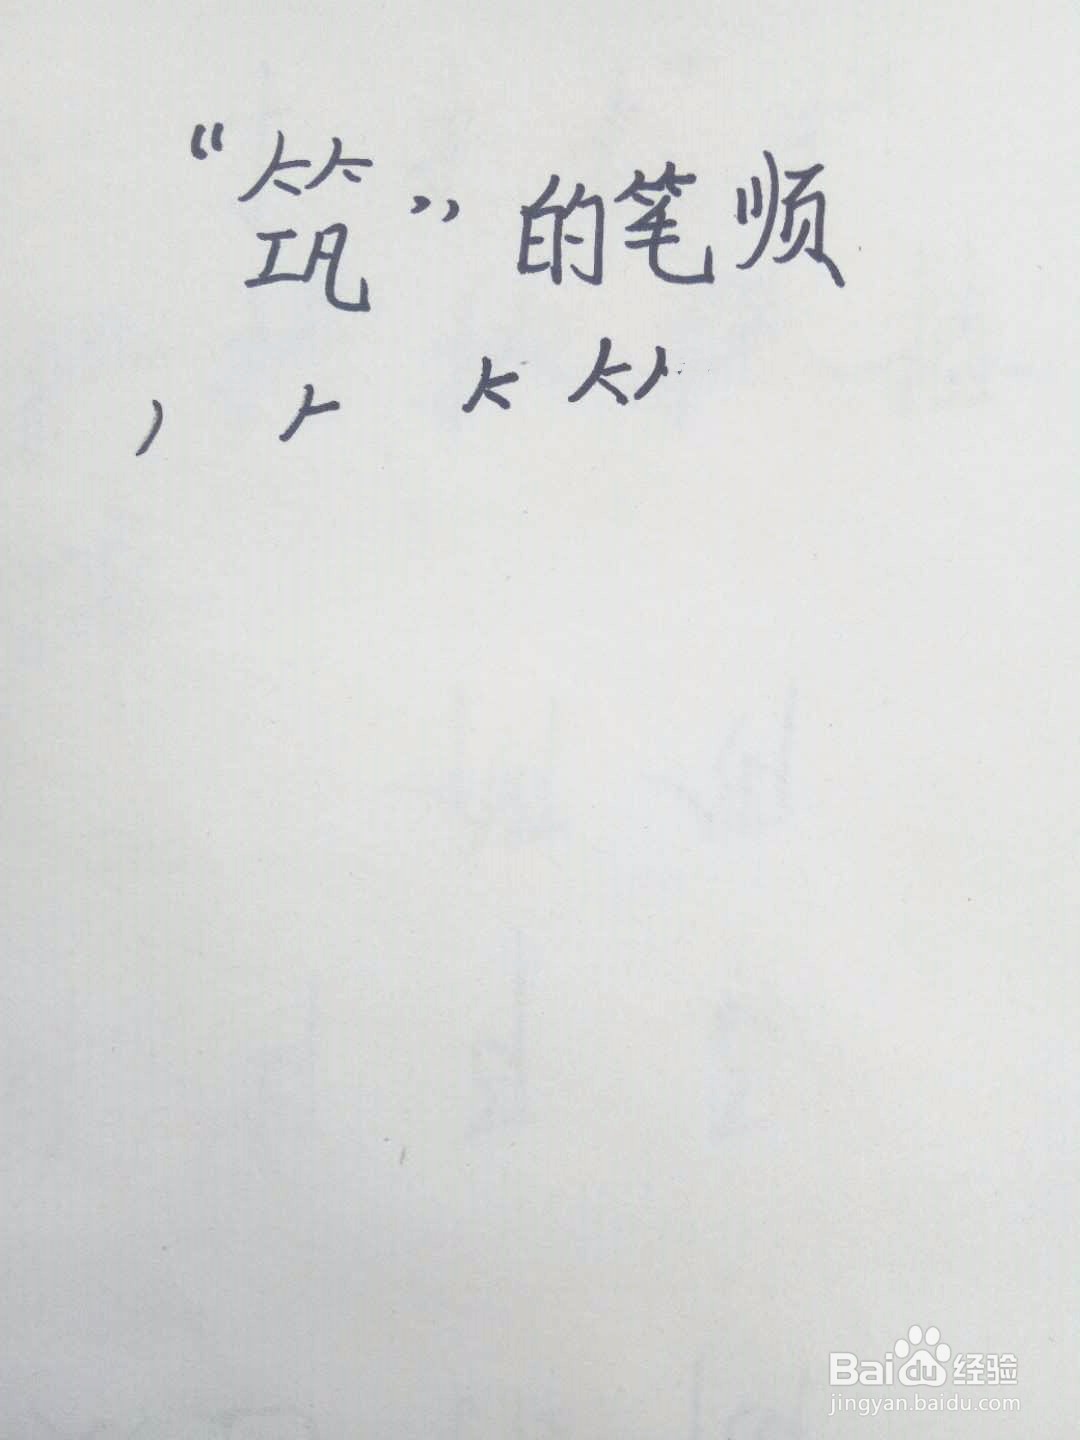 “筑”的笔顺
Baidu 经验
jingyan.baidu.com